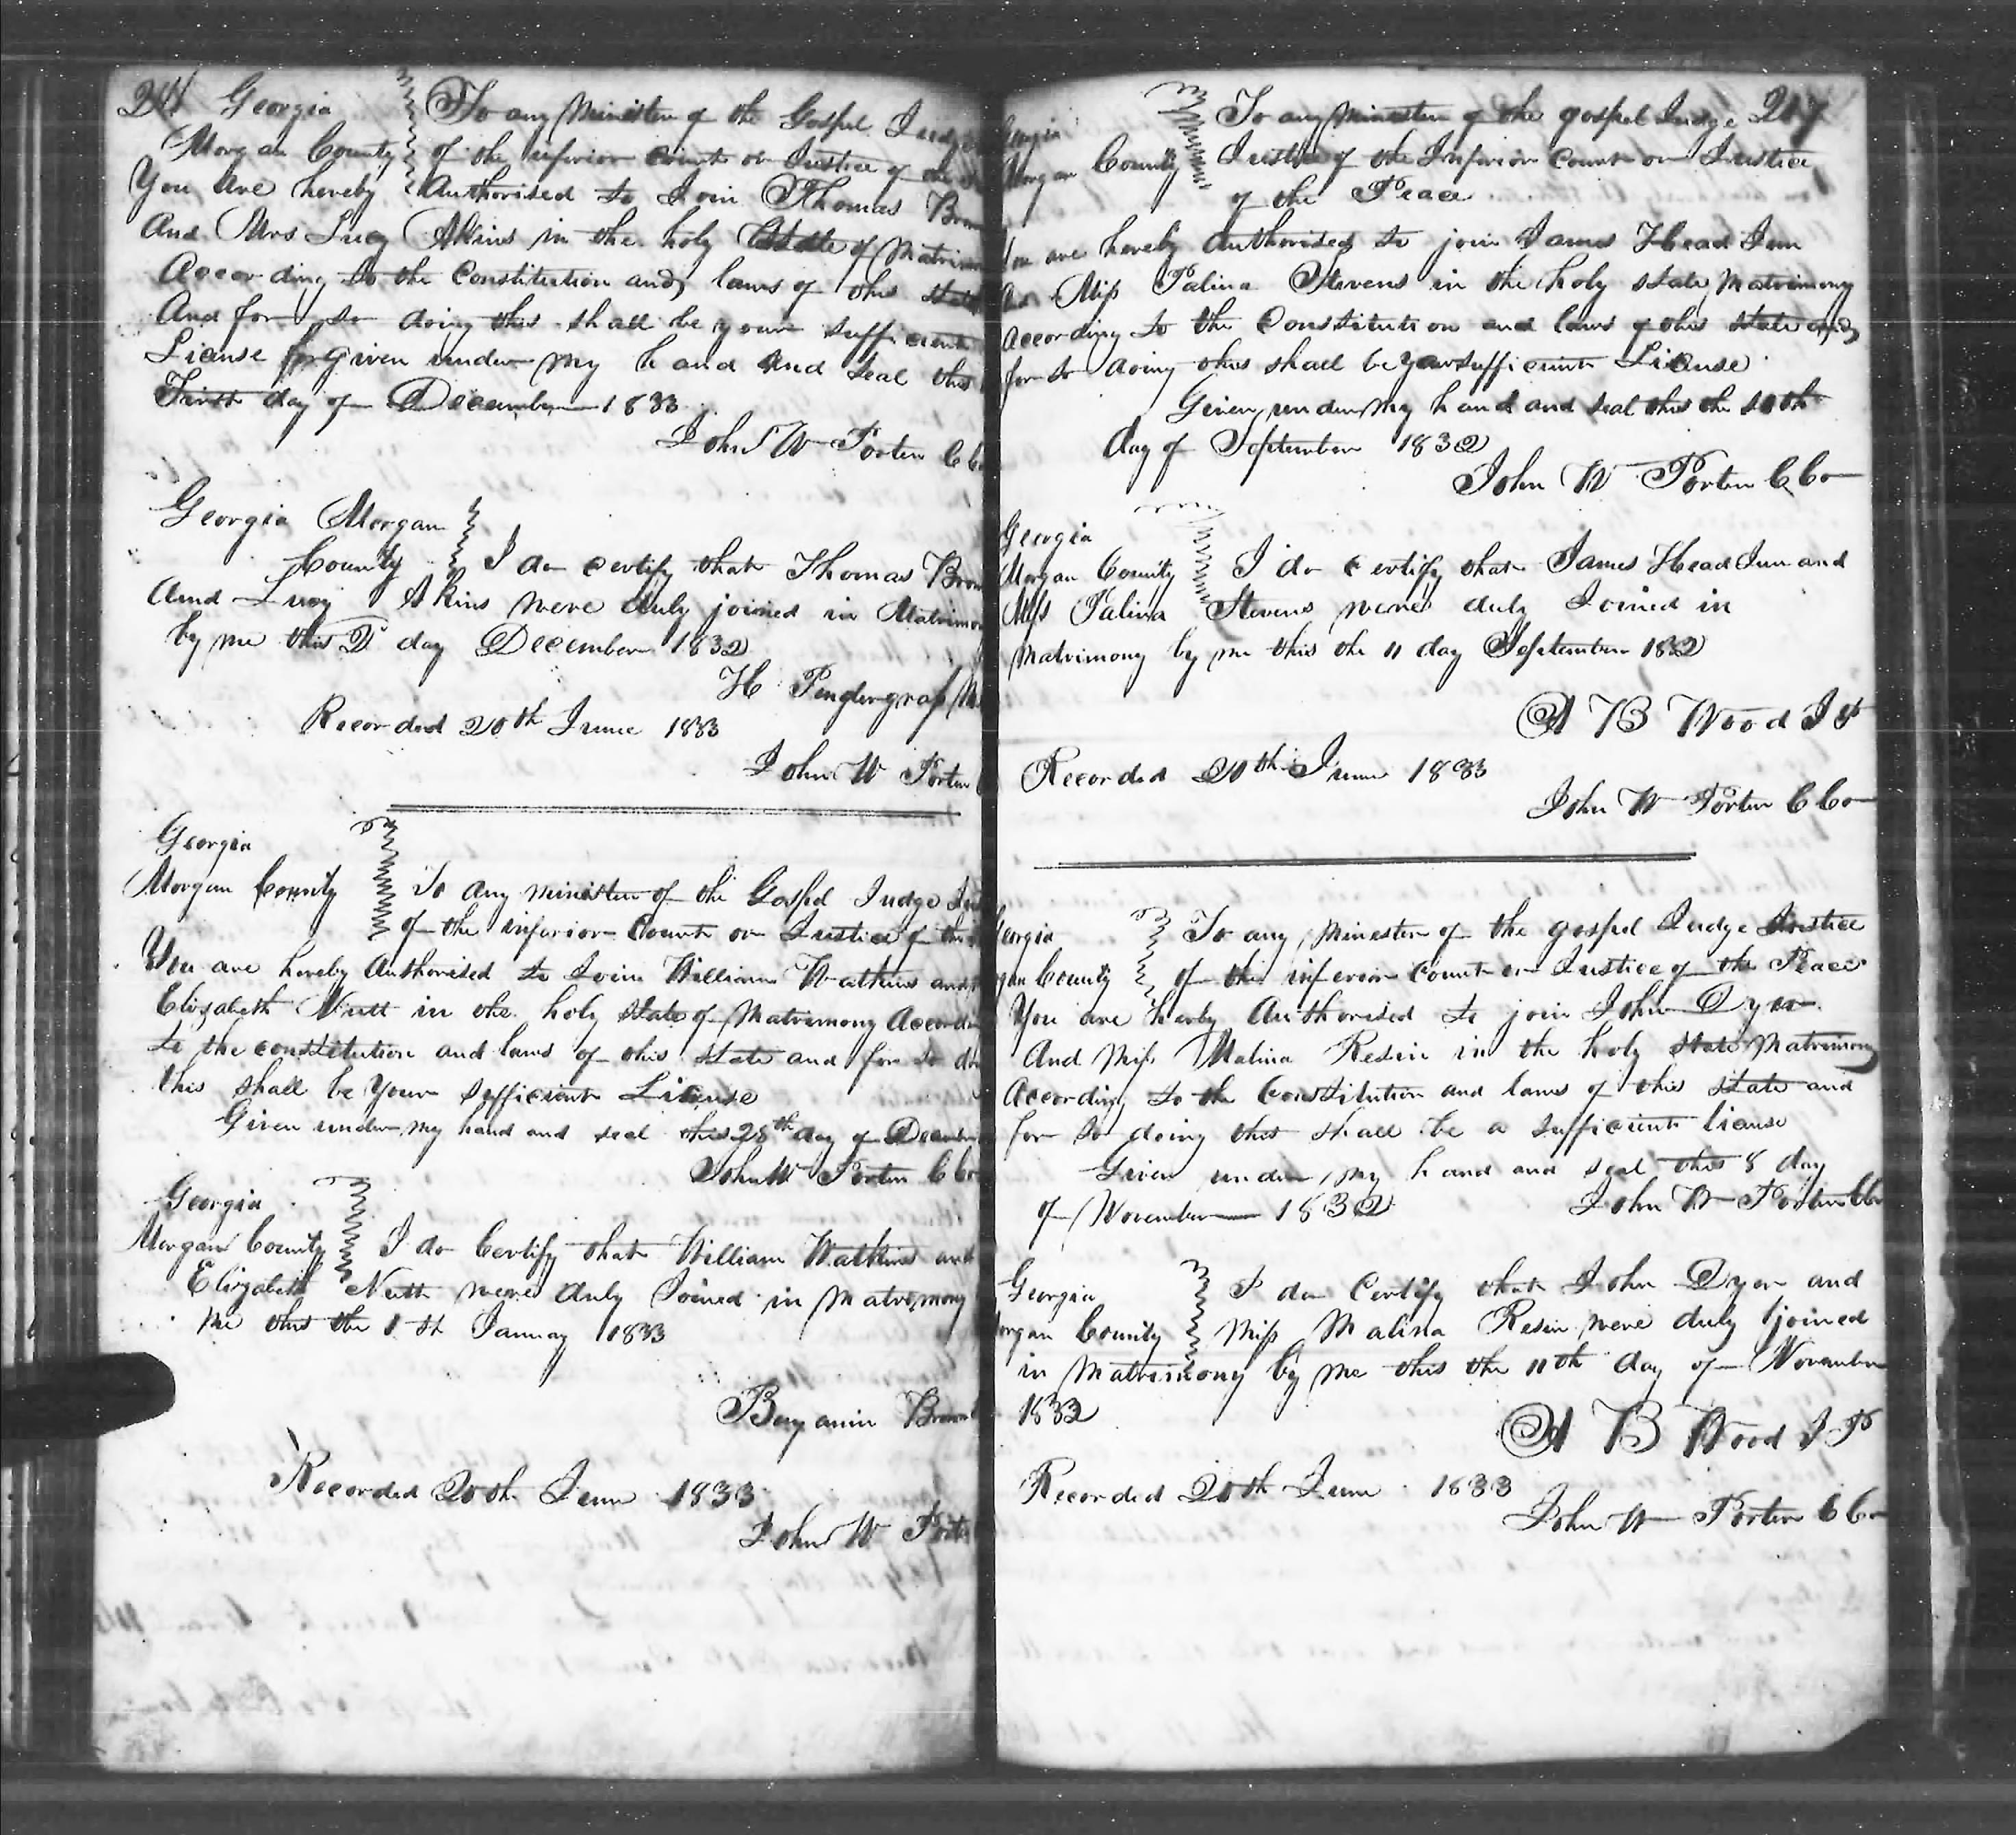 Georgia To any Minister of the Gospel Judge
Morgan County of the inferior court or Justice of the
You are hereby Authorised to Join Thomas
And Mrs Lucy Akins in the holy State of
According to the Constitution and laws of this state
And for so doing this shall be your sufficient
License given under my hand and seal this
First day of December 1833
John W Porter
Georgia Morgan
County I do certify that Thomas
And Lucy Akins were duly joined in
by me this 2 day December 1832
H
Recorded 20th June 1833
John W Porter
Georgia
Morgan County To any minister of the Gospel Judge
of the inferior Court or Justice of
You are hereby Authorised to Join William Watkins and
Elizabeth Nutt in the holy state of Matrimony
to the constitution and laws of this state and for so
this shall be your sefficient License
Given under my hand and seal this 28th day of
John W Porter
Georgia
Morgan County I do Certify that William Watkins and
Elizabeth Nutt were duly Joined in Matrimony
me this the 1st January 1833
Benjamin
Recorded 20th June 1833
John W
To any Minister of the gospel Judge 217
County Justice of the Inferior Court or Justice
of the Peace
are hereby authorised to join James Head Jun
Miss Palina Stevens in the holy state Matrimony
According to the Constitution and laws of this state and
for so doing this shall be your sufficient License
Given under my hand and seal this the 10th
day of September 1832
John W Porter CCo
Georgia
Morgan County I do certify that James Head Jun and
Miss Palina Stevens were duly Joined in
Matrimony by me this the 11 day September 1832
A B Wood JP
Recorded 20th June 1833
John W Porter CCo
To any Minester of the gospel Judge Justice
County of the inferior Court or Justice of the Peace
You are herby Authorised to join John Dyer
And Miss Malina Resin in the holy state Matrimony
According to the Constitution and laws of this state and
for so doing this shall be a sufficient license
Given under my hand and seal this 8 day
of November 1832 John W Porter CCo
Georgia I do Certify that John Dyer and
County Miss Malina Resin were duly joined
in Matrimony by me this the 11th day of November
1832
A B Wood JP
Recorded 20th June 1833
John W Porter CCo